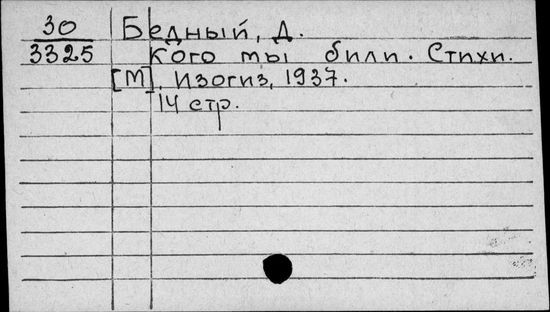 30 Бедный, Д.
3325 Кого мы били. Стихи.
[М], Изогиз, 1937.
14 стр.